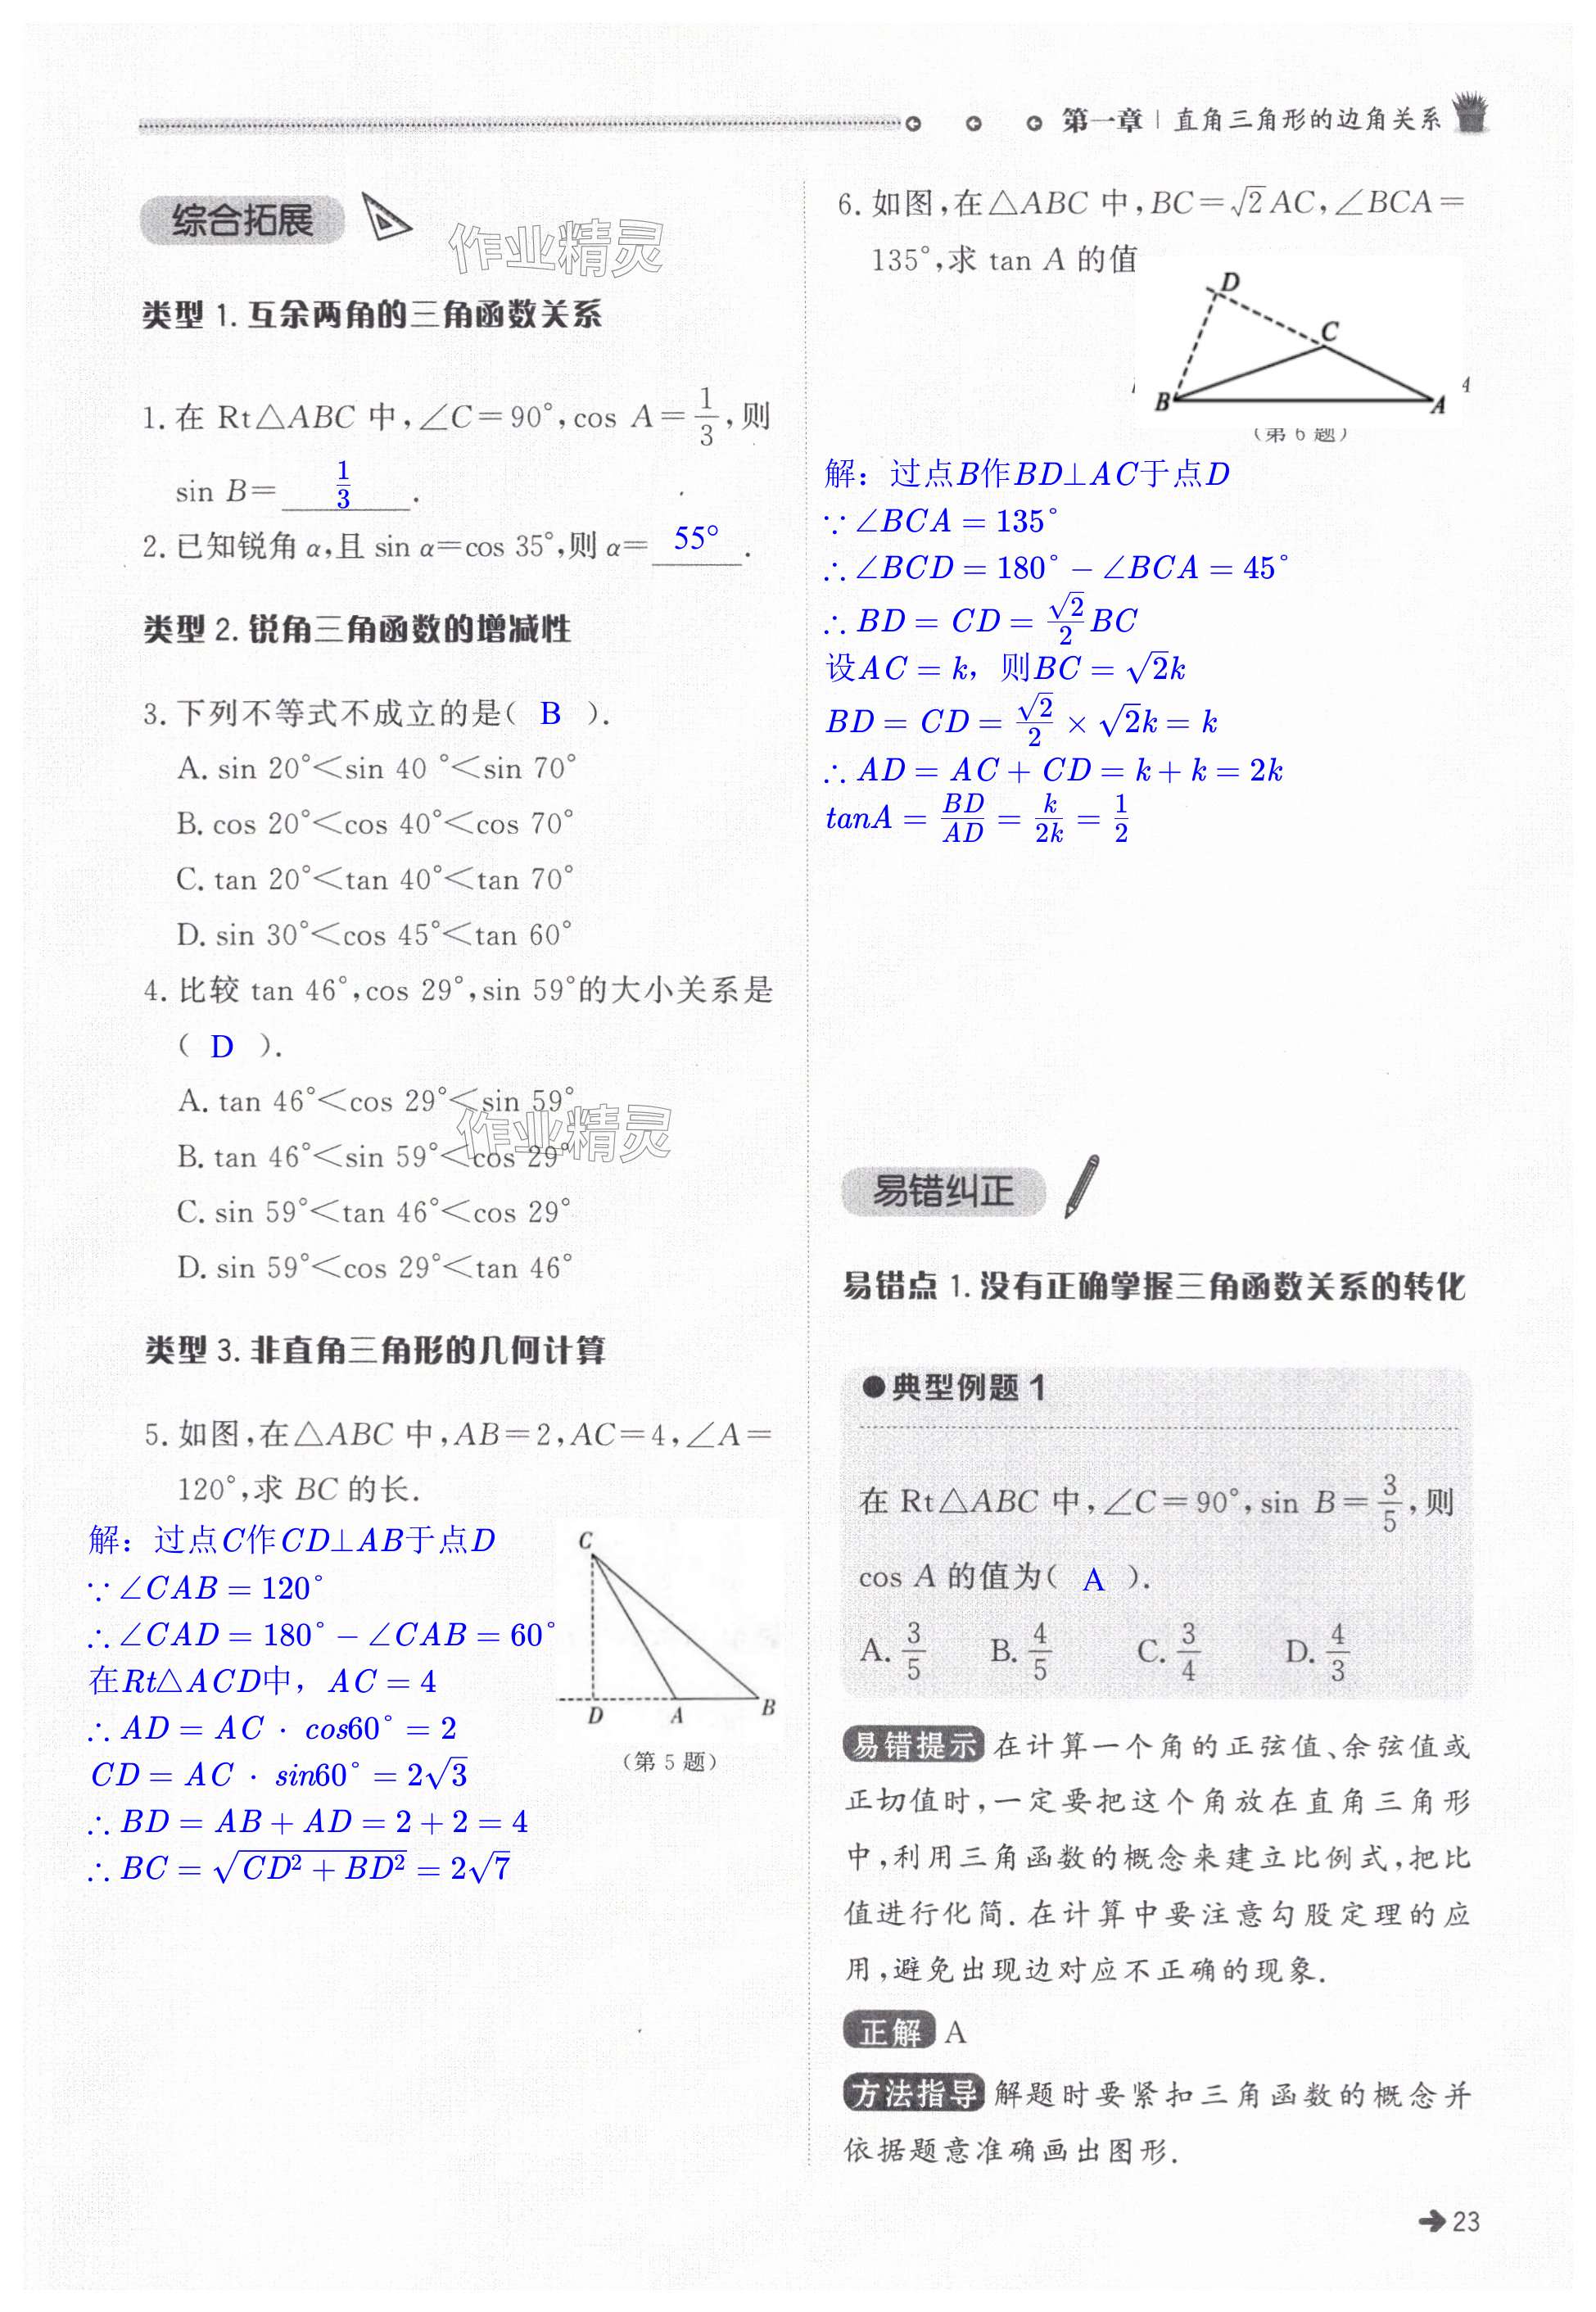 第一章 | 直角三角形的边角关系
综合拓展
作业精灵
类型 1. 互余两角的三角函数关系
1. 在 Rt△ABC 中,∠C=90°,cos A=1/3,则
sin B= 1/3 .
2. 已知锐角 α,且 sin α=cos 35°,则 α= 55° .
类型 2. 锐角三角函数的增减性
3. 下列不等式不成立的是( B ).
A. sin 20°<sin 40 °<sin 70°
B. cos 20°<cos 40°<cos 70°
C. tan 20°<tan 40°<tan 70°
D. sin 30°<cos 45°<tan 60°
4. 比较 tan 46°,cos 29°,sin 59°的大小关系是
( D ).
A. tan 46°<cos 29°<sin 59°
作业精灵
B. tan 46°<sin 59°<cos 29°
C. sin 59°<tan 46°<cos 29°
D. sin 59°<cos 29°<tan 46°
类型 3. 非直角三角形的几何计算
5. 如图,在△ABC 中,AB=2,AC=4,∠A=
120°,求 BC 的长.
解：过点C作CD⊥AB于点D
∵∠CAB=120°
∴∠CAD=180°-∠CAB=60°
在Rt△ACD中，AC=4
∴AD=AC · cos60°=2
CD=AC · sin60°=2√3
∴BD=AB+AD=2+2=4
∴BC=√(CD²+BD²)=2√7
C
D A B
(第 5 题)
6. 如图,在△ABC 中,BC=√2 AC,∠BCA=
135°,求 tan A 的值
D
C
B A
4
(第 6 题)
解：过点B作BD⊥AC于点D
∵∠BCA=135°
∴∠BCD=180°-∠BCA=45°
∴BD=CD=√2/2 BC
设AC=k，则BC=√2k
BD=CD=√2/2×√2k=k
∴AD=AC+CD=k+k=2k
tanA=BD/AD=k/2k=1/2
易错纠正
易错点 1. 没有正确掌握三角函数关系的转化
●典型例题 1
在 Rt△ABC 中,∠C=90°,sin B=3/5,则
cos A 的值为( A ).
A. 3/5 B. 4/5 C. 3/4 D. 4/3
易错提示 在计算一个角的正弦值、余弦值或
正切值时,一定要把这个角放在直角三角形
中,利用三角函数的概念来建立比例式,把比
值进行化简. 在计算中要注意勾股定理的应
用,避免出现边对应不正确的现象.
正解 A
方法指导 解题时要紧扣三角函数的概念并
依据题意准确画出图形.
23